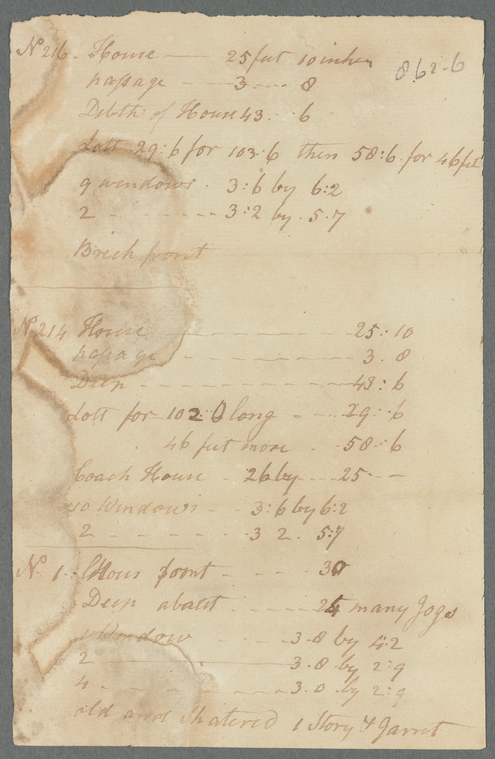 No 216 - House — 25 feet 10 inches
862-6
passage - 3 - 8
Debth of House 43 . 6
Lott 29:6 for 103.6 then 58:6 for 46 feet
9 windows . 3:6 by 6:2
2 - - - - - 3:2 by . 5.7
Brick front
No 214 House - - - - 25 . 10
passage - - - - 3 . 8
Deep - - - - 43 : 6
Lott for 102 0 long - - - 29 . 6
46 feet more . . 58 . 6
Coach House - 26 by - 25 - -
10 Windows - - 3:6 by 6:2
2 - - - - 3 2 . 5:7
No 1 - front - - - - 30
Deep about - - - - 24 many Jogs
Window - - - 3.8 by 4:2
2 — 3.8 by 2:9
4 - - - - 3.0 by 2:9
old and Shatered 1 Story & Garret